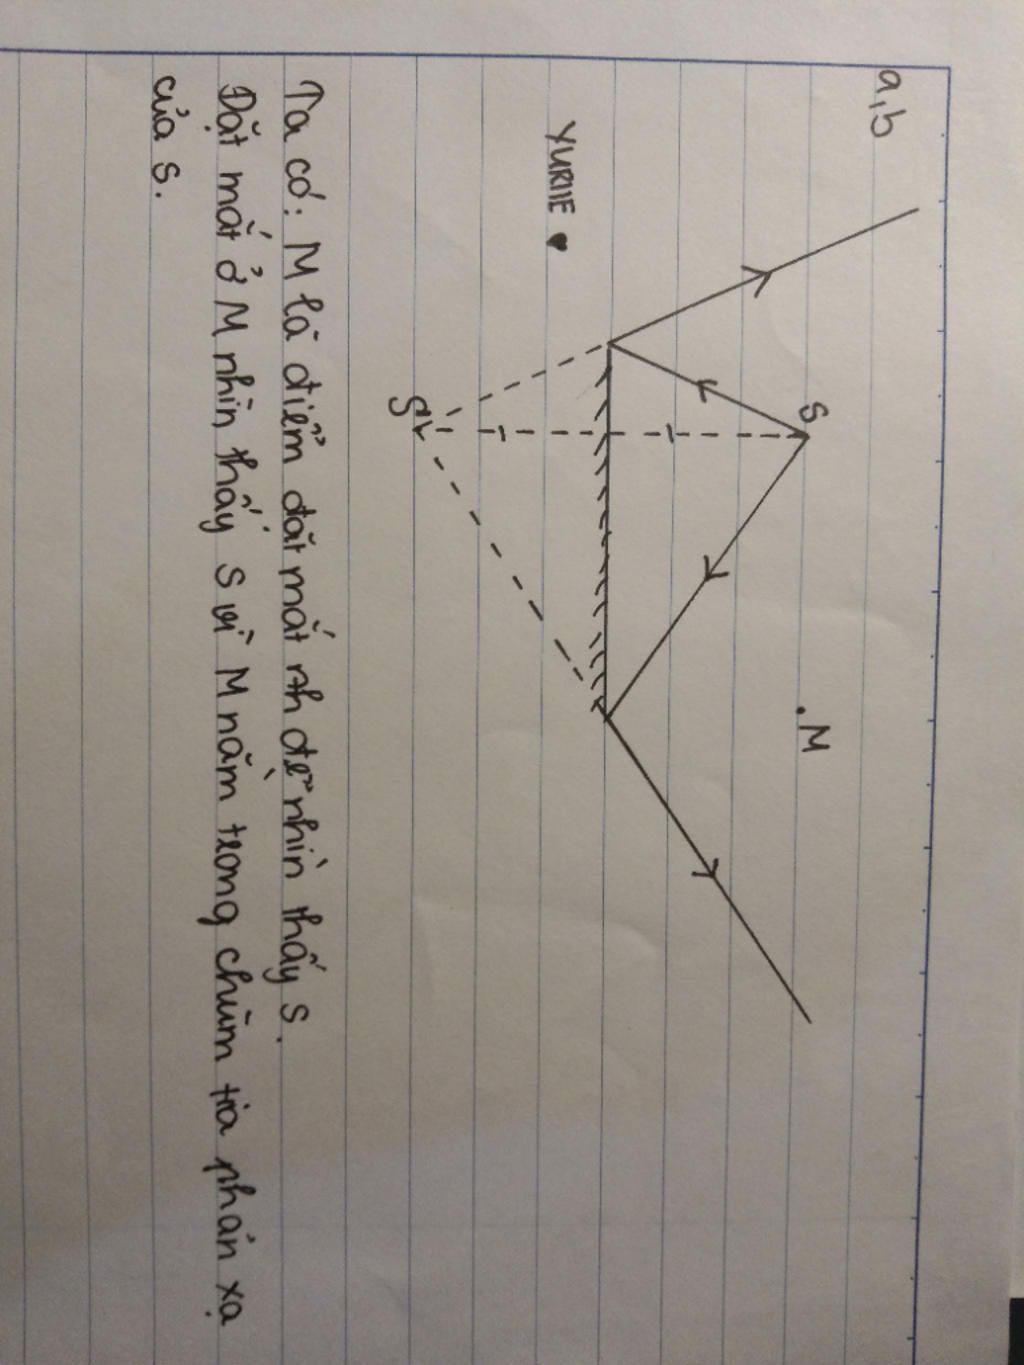 a,b
S
.M
YURIIE ♥
S'
Ta có: M là điểm đặt mắt để nhìn thấy S.
Đặt mắt ở M nhìn thấy S vì M nằm trong chùm tia phản xạ
của S.